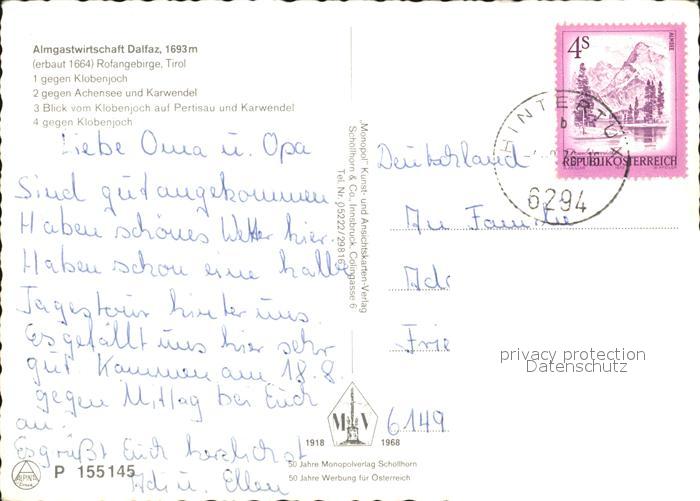 Almgastwirtschaft Dalfaz, 1693m
(erbaut 1664) Rofangebirge, Tirol
1 gegen Klobenjoch
2 gegen Achensee und Karwendel
3 Blick vom Klobenjoch auf Pertisau und Karwendel
4 gegen Klobenjoch
Liebe Oma u. Opa
Sind gut angekommen.
Haben schönes Wetter hier.
Haben schon eine halbe
Tagestour hinter uns.
Es gefällt uns hier sehr
gut. Kommen am 18.8.
gegen Mittag bei Euch
an.
Es grüßt Euch herzlichst
Adi u. Ellen
P 155145
"Monopol" Kunst- und Ansichtskarten-Verlag
Schöllhorn & Co., Innsbruck, Colingasse 6
Tel. Nr. 05222/29816
M V
1918 1968
50 Jahre Monopolverlag Schöllhorn
50 Jahre Werbung für Österreich
4S
ALMSEE
REPUBLIK ÖSTERREICH
HINTERTUX
b
6294
Deutschland
An Familie
Adr
Frie
6149
privacy protection
Datenschutz